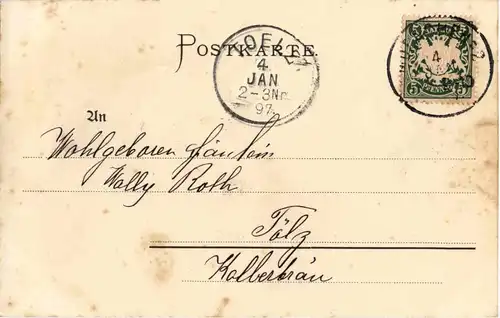 POSTKARTE.
TOELZ
4
JAN
2-3Nm
97
4
5 5
PFENNIG
An
Wohlgeboren Fräulein
Wally Roth
Tölz
Kolberbräu